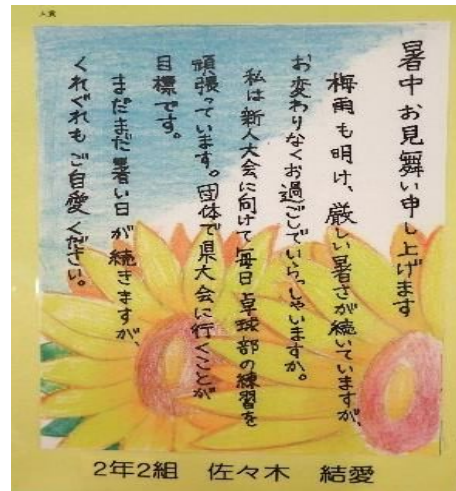 入賞
暑中お見舞い申し上げます
梅雨も明け、厳しい暑さが続いていますが、
お変わりなくお過ごしでいらっしゃいますか。
私は新人大会に向けて毎日卓球部の練習を
頑張っています。団体で県大会に行くことが
目標です。
まだまだ暑い日が続きますが、
くれぐれもご自愛ください。
2年2組 佐々木 結愛